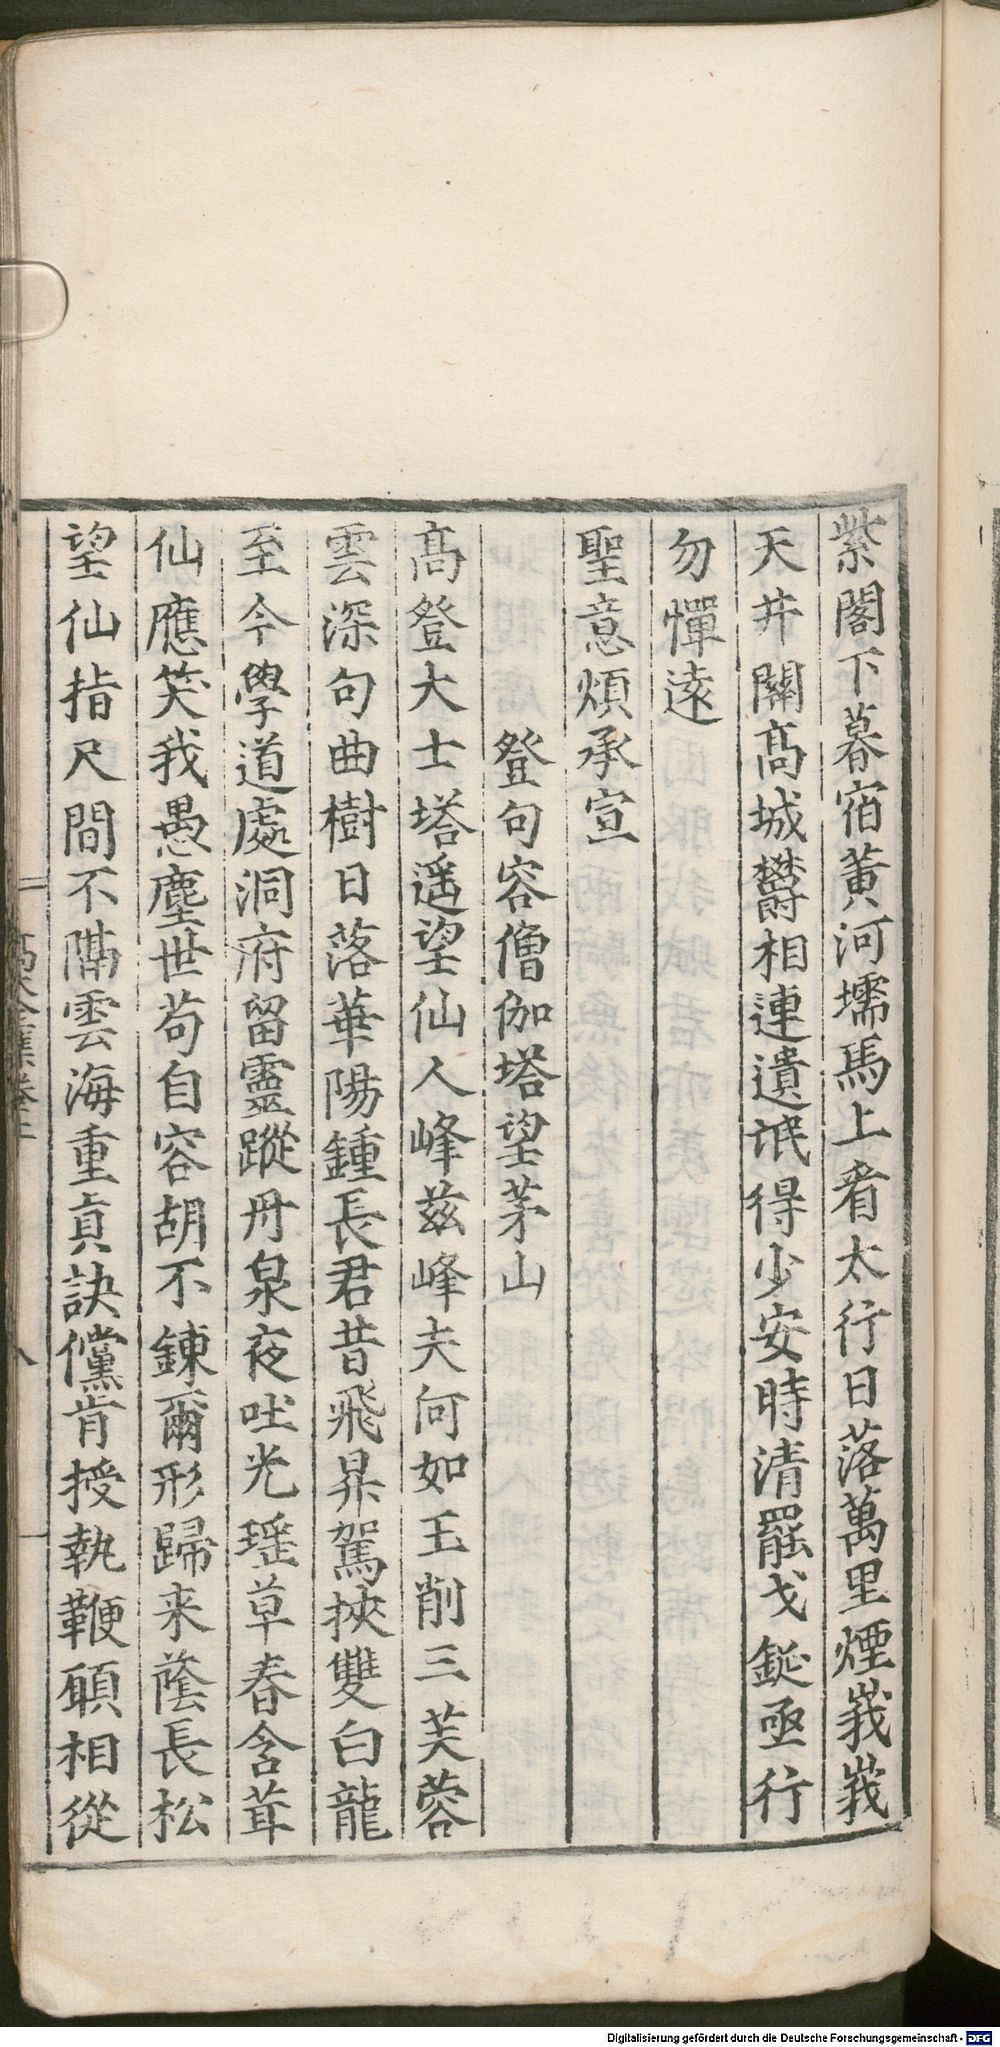 紫閣下暮宿黃河壖馬上看太行日落萬里煙峩峩
天井關高城欝相連遺氓得少安時清罷戈鋋亟行
勿憚遠
聖意煩承宣
登句容僧伽塔望茅山
高登大士塔遥望仙人峰兹峰夫何如玉削三芙蓉
雲深句曲樹日落華陽鍾長君昔飛昇駕挾雙白龍
至今學道處洞府留靈蹤丹泉夜吐光瑶草春含茸
仙應笑我愚塵世苟自容胡不鍊爾形歸来蔭長松
望仙指尺間不隔雲海重真訣儻肯授執鞭願相從
八
Digitalisierung gefördert durch die Deutsche Forschungsgemeinschaft - DFG